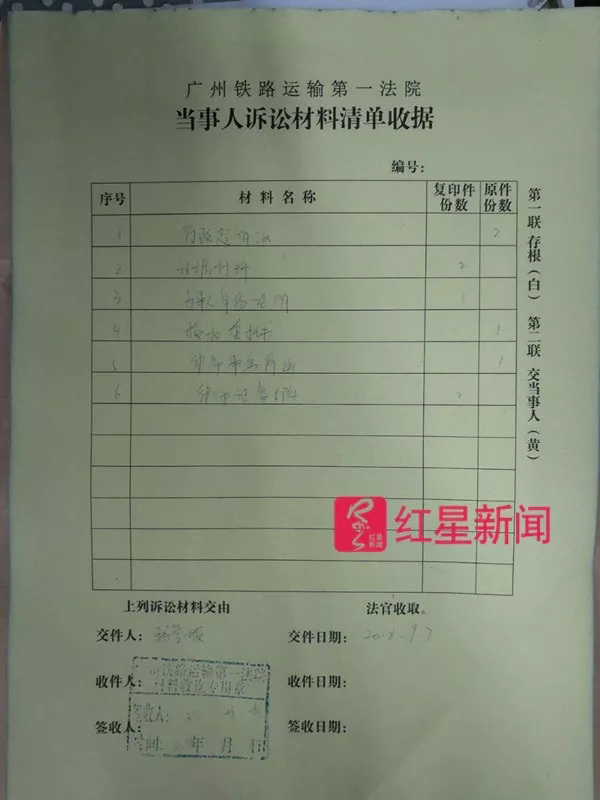 广州铁路运输第一法院
当事人诉讼材料清单收据
编号：
序号 材料名称 复印件份数 原件份数
1 行政起诉状 2
2 证据材料 2
3 身份证明 1
4 授权委托书 1
5 律师事务所函 1
6 律师证复印件
第一联 存根（白） 第二联 交当事人（黄）
红星新闻
红星新闻
上列诉讼材料交由 法官收取。
交件人： 交件日期： 9.7
收件人： 收件日期：
签收人： 签收日期：
铁路运输第一法院
材料收取专用章
签收人：
时间： 年 月 日